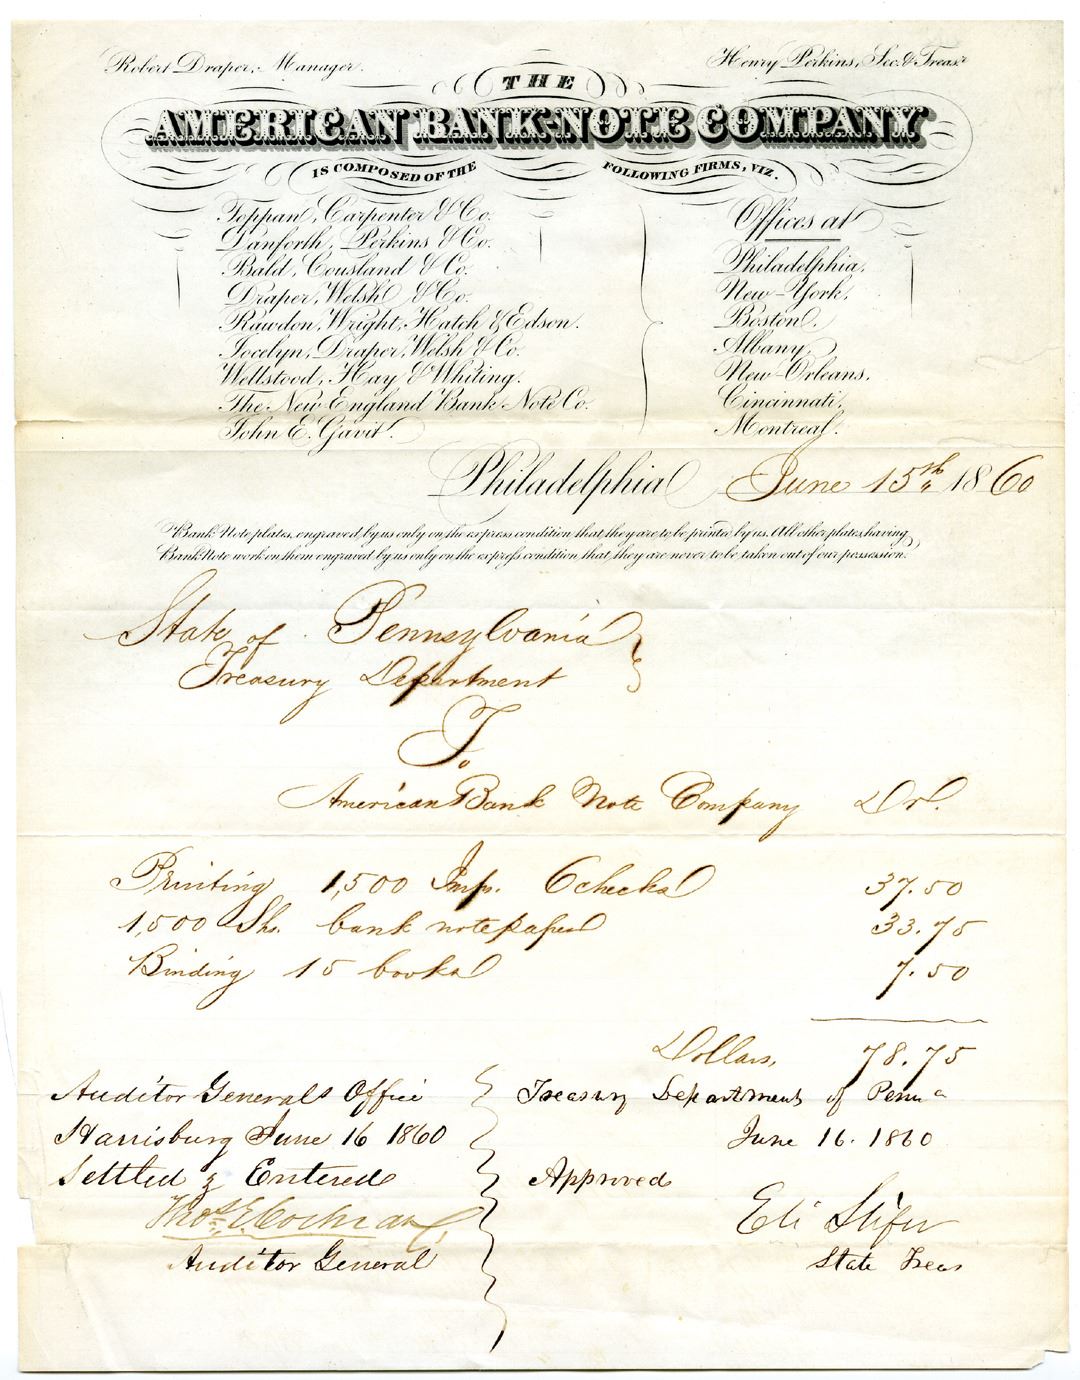 Robert Draper, Manager.
Henry Perkins, Sec. & Treasr.
THE
AMERICAN BANK-NOTE COMPANY
IS COMPOSED OF THE FOLLOWING FIRMS, VIZ.
Toppan, Carpenter & Co.
Danforth, Perkins & Co.
Bald, Cousland & Co.
Draper, Welsh & Co.
Rawdon, Wright, Hatch & Edson.
Jocelyn, Draper, Welsh & Co.
Wellstood, Hay & Whiting.
The New England Bank Note Co.
John E. Gavit.
Offices at
Philadelphia,
New-York,
Boston,
Albany,
New-Orleans,
Cincinnati,
Montreal.
Philadelphia June 15th 1860
Bank Note plates, engraved by us only on the express condition that they are to be printed by us. All other plates having
Bank Note work on them engraved by us only on the express condition, that they are never to be taken out of our possession.
State of Pennsylvania
Treasury Department
To
American Bank Note Company Dr.
Printing 1,500 Imp. 6 checks 37.50
1,500 Shs. bank note paper 33.75
Binding 15 books 7.50
Dollars, 78.75
Auditor Generals Office
Harrisburg June 16 1860
Settled & Entered
Thos. E. Cochran
Auditor General
Treasury Department of Penna
June 16. 1860
Approved
Eli Slifer
State Treas